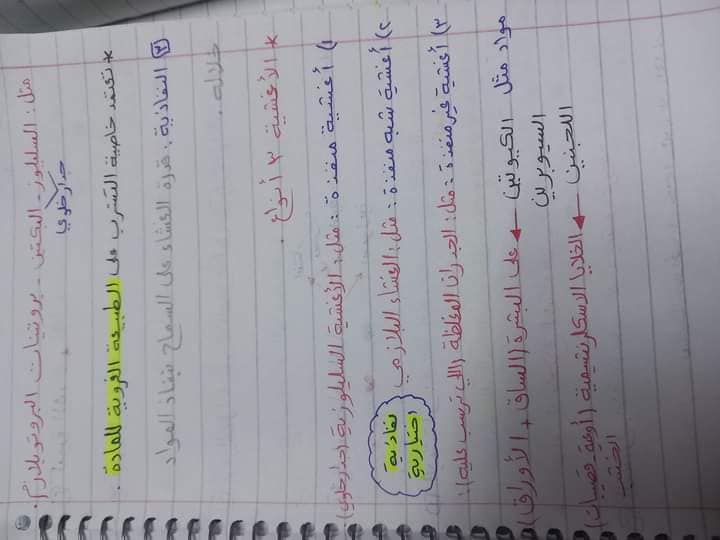 مثل: السليلوز - البكتين - بروتينات البروتوبلازم.
جدار خلوي
* تعتمد خاصية التشرب على الطبيعة الغروية للمادة.
[٣] النفاذية: قدرة الغشاء على السماح بنفاذ المواد
خلاله.
* الأغشية ٣ أنواع
١) أغشية منفذة: مثل: الأغشية السليلوزية (جدار خلوي)
٢) أغشية شبه منفذة: مثل: الغشاء البلازمي
نفاذية اختيارية
٣) أغشية غير منفذة: مثل: الجدران المغلظة (اللي ترسب عليه):
مواد مثل الكيوتين ← على البشرة (الساق + الأوراق)
السيوبرين
اللجنين ← الخلايا الاسكلرنشيمية (أوعية قصيبات)
الخشب